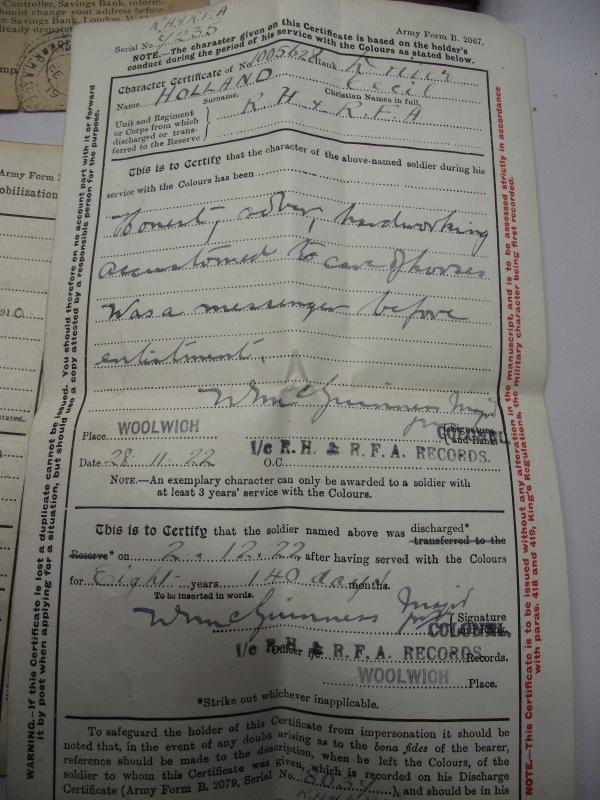 Controller, Savings Bank, inform-
should change your address before
Savings Bank, London, W.
already despatched
Army Form
obilization
191 0.
R.H.&R.F.A
Serial No. 4235
Army Form B. 2067.
NOTE.—The character given on this Certificate is based on the holder's
conduct during the period of his service with the Colours as stated below.
Character Certificate of No. 1005628 Rank
Name HOLLAND Cecil
Surname. Christian Names in full.
Unit and Regiment
or Corps from which
discharged or trans-
ferred to the Reserve
R H & R F A
This is to Certify that the character of the above-named soldier during his
service with the Colours has been
Honest, sober, hardworking
accustomed to care of horses
Was a messenger before
enlistment.
WmcGuinness Major
Signature
and Rank
COLONEL
Place WOOLWICH
i/c R. H. & R. F. A. RECORDS.
Date 28. 11. 22 O.C.
NOTE.—An exemplary character can only be awarded to a soldier with
at least 3 years' service with the Colours.
This is to Certify that the soldier named above was discharged*
transferred to the
Reserve* on 2. 12. 22 after having served with the Colours
for Eight years 140 days months.
To be inserted in words.
WmcGuinness Major
Signature
and Rank.
COLONEL,
i/c R.H. & R.F.A. RECORDS
Officer i/c Records.
WOOLWICH Place.
*Strike out whichever inapplicable.
To safeguard the holder of this Certificate from impersonation it should be
noted that, in the event of any doubt arising as to the bona fides of the bearer,
reference should be made to the description, when he left the Colours, of the
soldier to whom this Certificate was given, which is recorded on his Discharge
Certificate (Army Form B. 2079, Serial No. ), and should be in his
WARNING.—If this Certificate is lost a duplicate cannot be issued. You should therefore on no account part with it or forward
it by post when applying for a situation, but should use a copy attested by a responsible person for the purpose.
NOTE.—This Certificate is to be issued without any alteration in the manuscript, and is to be assessed strictly in accordance
with paras. 418 and 419, King's Regulations, the military character being first recorded.